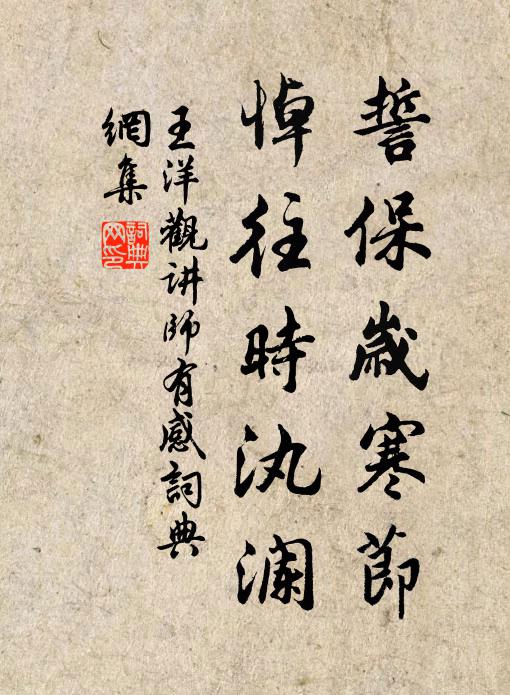 誓保歲寒節
悼往時汍瀾
王洋觀講師有感詞典
網集
詞典
网印